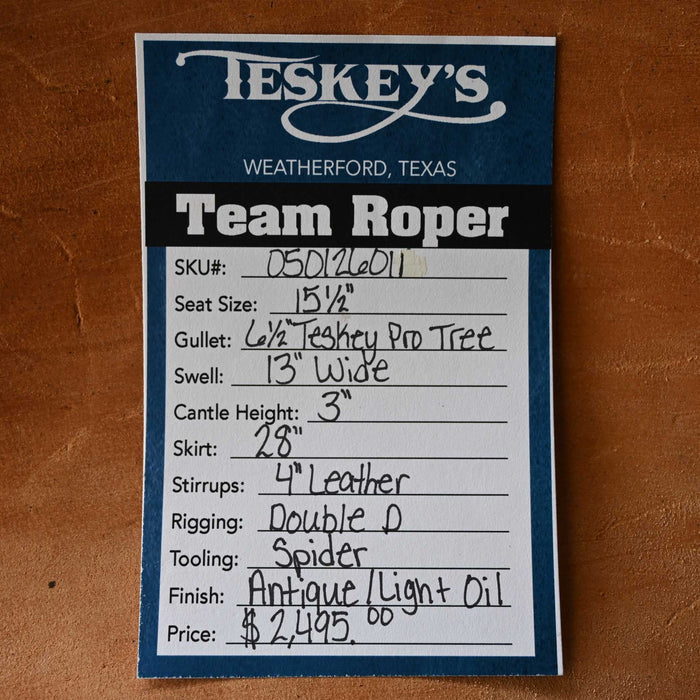 TESKEY'S
WEATHERFORD, TEXAS
Team Roper
SKU#: 050126011
Seat Size: 15½"
Gullet: 6½" Teskey Pro Tree
Swell: 13" Wide
Cantle Height: 3"
Skirt: 28"
Stirrups: 4" Leather
Rigging: Double D
Tooling: Spider
Finish: Antique/Light Oil
Price: $2,495.00